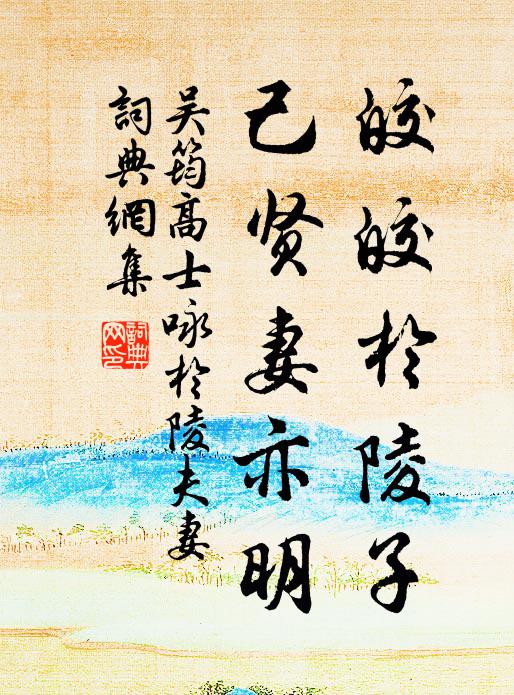 皎皎於陵子
己贤妻亦明
吴筠高士咏於陵夫妻
詞典網集
詞典
网印